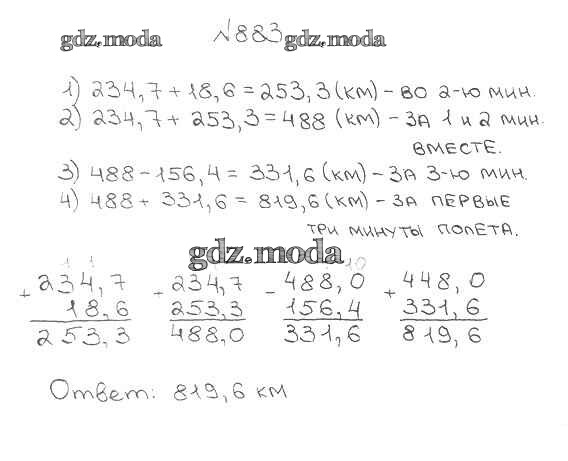 №883
gdz.moda gdz.moda
1) 234,7 + 18,6 = 253,3 (км) – во 2-ю мин.
2) 234,7 + 253,3 = 488 (км) – за 1 и 2 мин.
вместе.
3) 488 – 156,4 = 331,6 (км) – за 3-ю мин.
4) 488 + 331,6 = 819,6 (км) – за первые
три минуты полета.
gdz.moda
1 1 10
+ 234,7 + 234,7 – 488,0 + 448,0
18,6 253,3 156,4 331,6
253,3 488,0 331,6 819,6
Ответ: 819,6 км